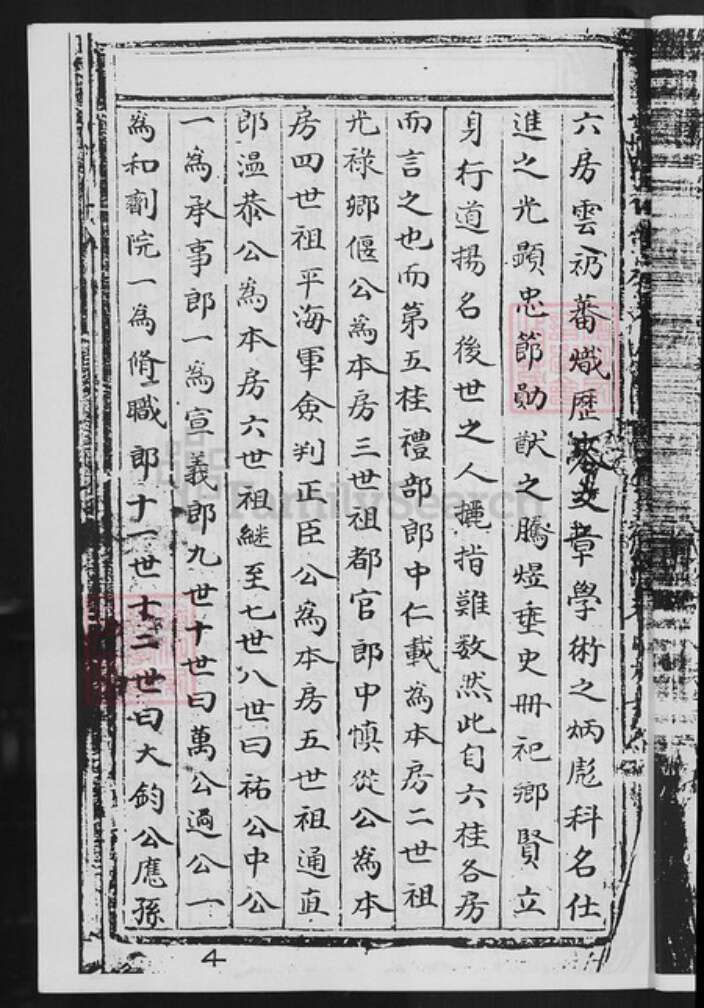 六房雲礽蕃熾歷來文章學術之炳彪科名仕
進之光顯忠節勛猷之騰煌垂史冊祀鄉賢立
身行道揚名後世之人擢指難数然此自六桂各房
而言之也而第五桂禮部郎中仁載為本房二世祖
光祿鄉偃公為本房三世祖都官郎中慎從公為本
房四世祖平海軍僉判正臣公為本房五世祖通直
郎溫恭公為本房六世祖繼至七世八世曰祐公中公
一為承事郎一為宣義郎九世十世曰萬公過公一
為和劑院一為脩職郎十一世十二世曰大鈞公應孫
4
FamilySearch